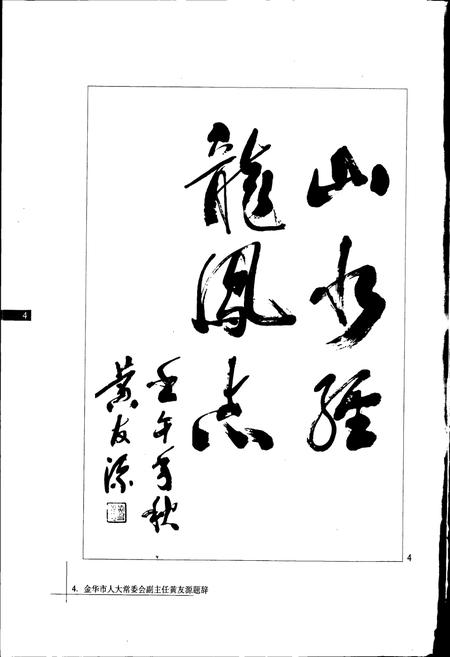 山水經
龍鳳志
壬午年秋
黄友源
4
4
4. 金华市人大常委会副主任黄友源题辞